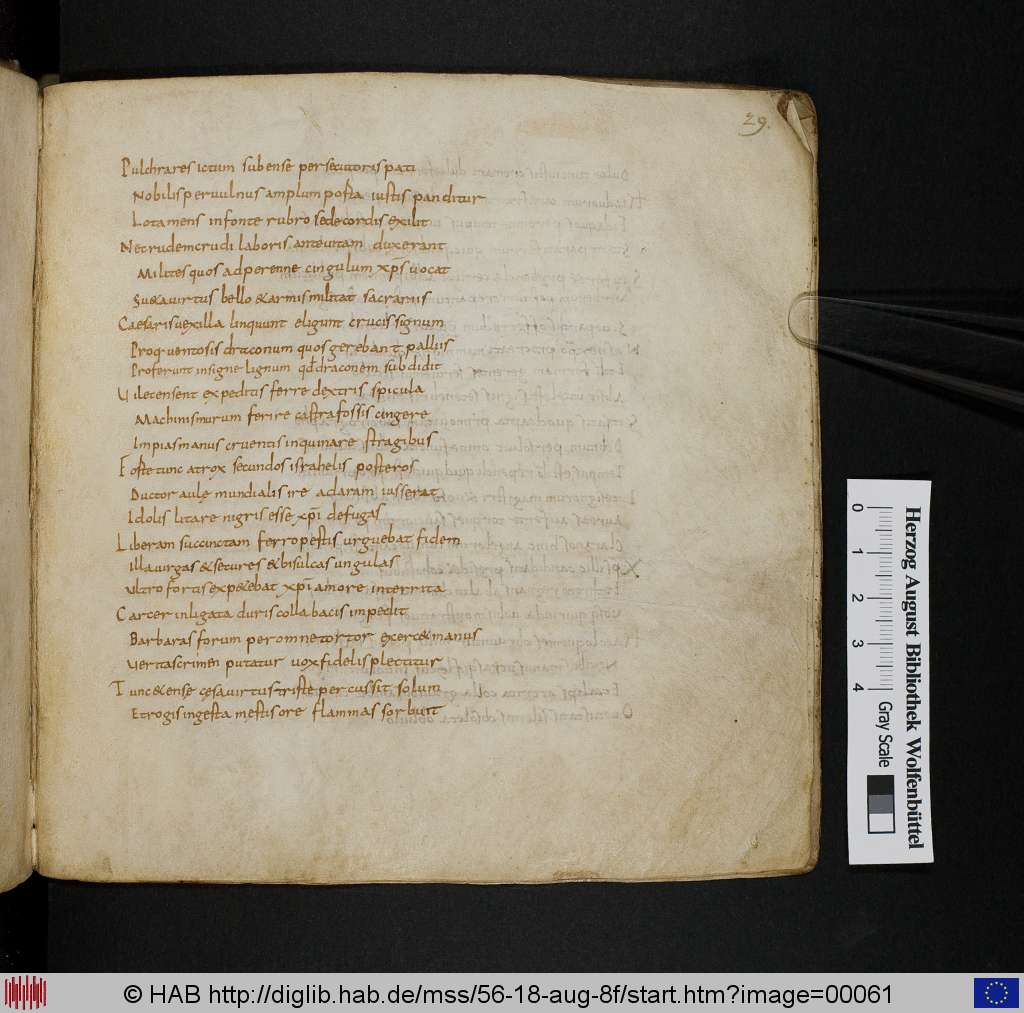 29.
Pulchra res ictum sub ense persecutoris pati
Nobilis per vulnus amplum porta iustis panditur
Lota mens in fonte rubro sede cordis exilit
Nec rudem crudi laboris ante vitam duxerant
Milites quos ad perenne cingulum xp̄s vocat
Sueta virtus bello & armis militat sacrariis
Caesaris vexilla linquunt eligunt crucis signum
Proq ventosis draconum quos gerebant palliis
Proferunt insigne lignum qđ draconem subdidit
Vile censent expeditis ferre dextris spicula
Machinis murum ferire castra fossis cingere
Impias manus cruentis inquinare stragibus
Forte tunc atrox secundos israhelis posteros
Ductor aule mundialis ire ad aram iusserat
Idolis litare nigris esse xp̄i defugas
Liberam succinctam ferro pestis urguebat fidem
Illa virgas & secures & bisulcas ungulas
Ultro fortis exp&ebat xp̄i amore interrita
Carcer inligata duris colla bacis impedit
Barbaras forum per omne tortor exerc& manus
Veritas crimen putatur vox fidelis plectitur
Tunc & ense cesa virtus triste percussit solum
Et rogis ingesta mestis ore flammas sorbuit
0 1 2 3 4
Gray Scale
Herzog August Bibliothek Wolfenbüttel
© HAB http://diglib.hab.de/mss/56-18-aug-8f/start.htm?image=00061